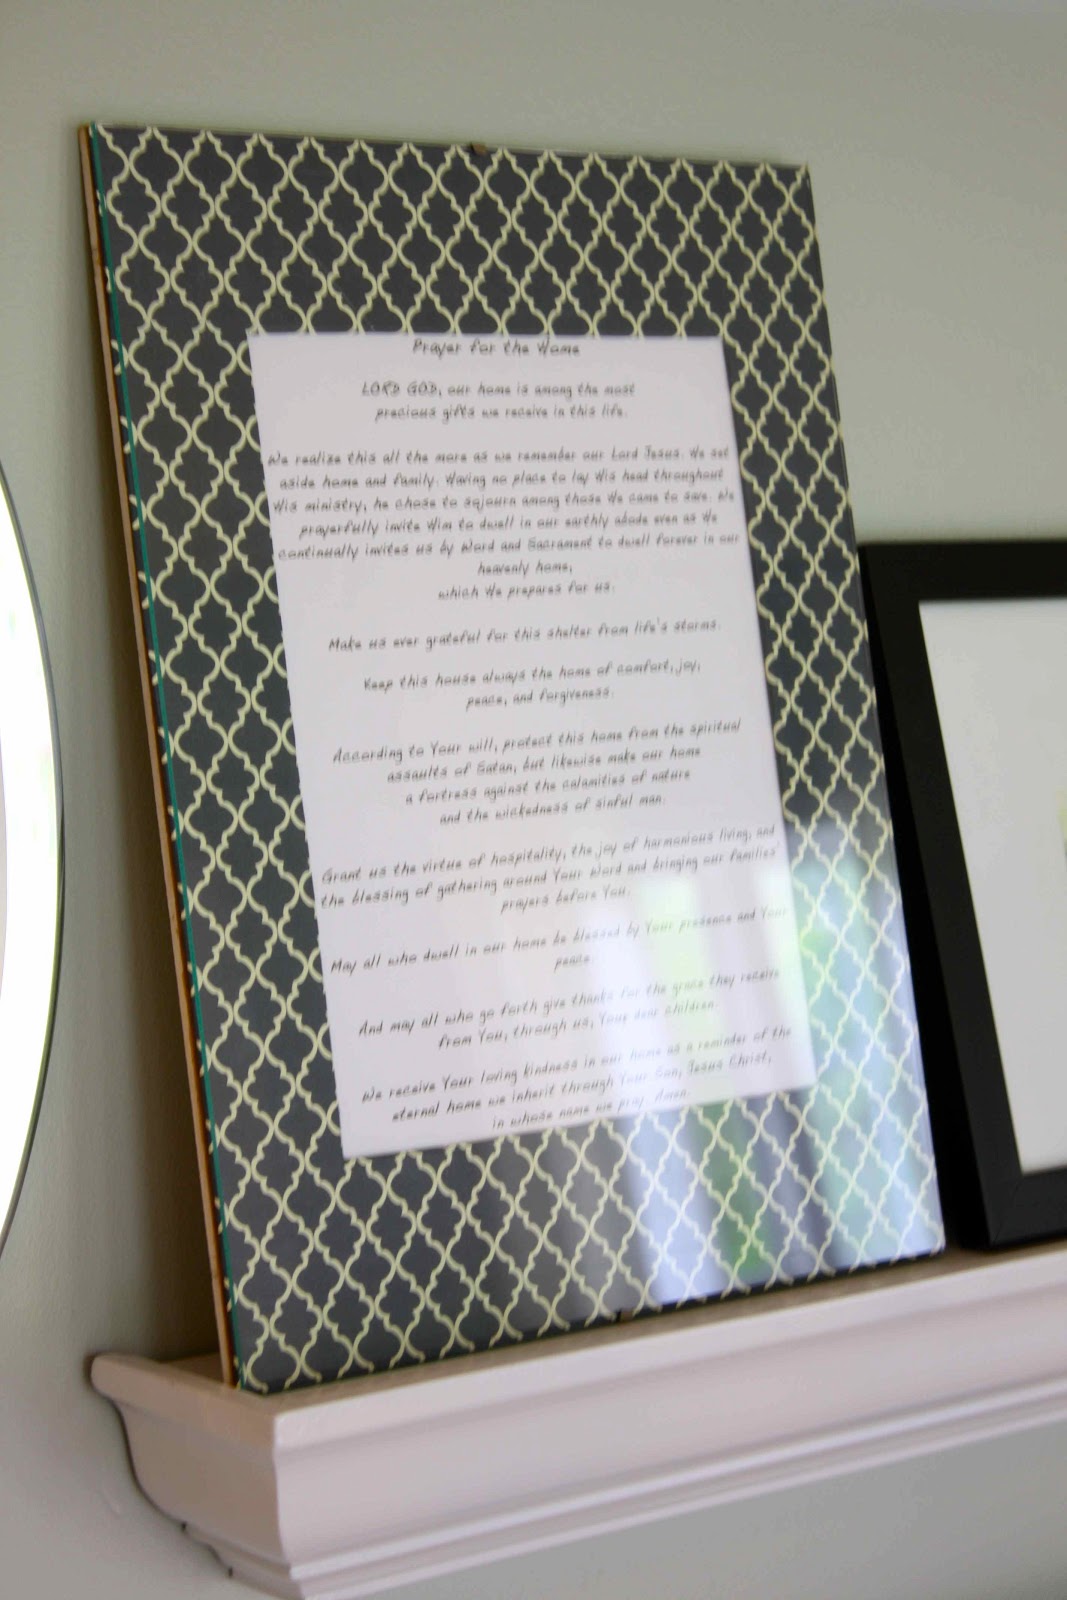 Prayer for the Home
LORD GOD, our home is among the most
precious gifts we receive in this life.
We realize this all the more as we remember our Lord Jesus. He set
aside home and family. Having no place to lay His head throughout
His ministry, he chose to sojourn among those He came to save. We
prayerfully invite Him to dwell in our earthly abode even as He
continually invites us by Word and Sacrament to dwell forever in our
heavenly home,
which He prepares for us.
Make us ever grateful for this shelter from life's storms.
Keep this house always the home of comfort, joy,
peace, and forgiveness.
According to Your will, protect this home from the spiritual
assaults of Satan, but likewise make our home
a fortress against the calamities of nature
and the wickedness of sinful man.
Grant us the virtue of hospitality, the joy of harmonious living, and
the blessing of gathering around Your Word and bringing our families'
prayers before You.
May all who dwell in our home be blessed by Your presence and Your
peace.
And may all who go forth give thanks for the grace they receive
from You, through us, Your dear children.
We receive Your loving kindness in our home as a reminder of the
eternal home we inherit through Your Son, Jesus Christ,
in whose name we pray. Amen.